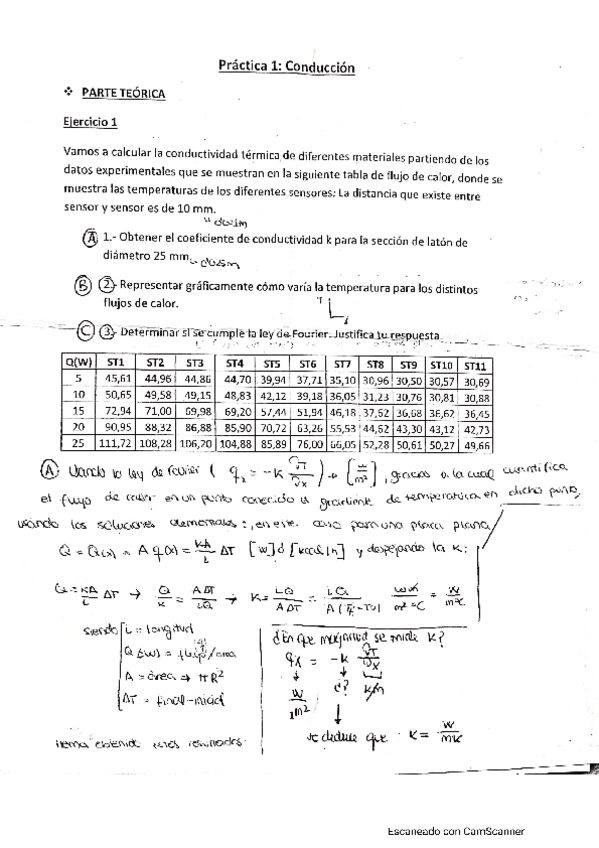 Práctica 1: Conducción
❖ PARTE TEÓRICA
Ejercicio 1
Vamos a calcular la conductividad térmica de diferentes materiales partiendo de los
datos experimentales que se muestran en la siguiente tabla de flujo de calor, donde se
muestra las temperaturas de los diferentes sensores. La distancia que existe entre
sensor y sensor es de 10 mm.
A 1.- Obtener el coeficiente de conductividad k para la sección de latón de
diámetro 25 mm.
B 2.- Representar gráficamente cómo varía la temperatura para los distintos
flujos de calor.
C 3.- Determinar si se cumple la ley de Fourier. Justifica tu respuesta
Q(W) ST1 ST2 ST3 ST4 ST5 ST6 ST7 ST8 ST9 ST10 ST11
5 45,61 44,96 44,86 44,70 39,94 37,71 35,10 30,96 30,50 30,57 30,69
10 50,65 49,58 49,15 48,83 42,12 39,18 36,05 31,23 30,76 30,81 30,88
15 72,94 71,00 69,98 69,20 57,44 51,94 46,18 37,62 36,68 36,62 36,45
20 90,95 88,32 86,88 85,90 70,72 63,26 55,53 44,62 43,30 43,12 42,73
25 111,72 108,28 106,70 104,88 85,89 76,00 66,05 52,28 50,61 50,27 49,66
A Usando la ley de Fourier ( qx = -k ∂T/∂x ) → [w/m²], gracias a la cual cuantifica
el flujo de calor en un punto conocido el gradiente de temperatura en dicho punto,
usando las soluciones elementales:, en este caso para una placa plana,
Q = Q(x) = A q(x) = KA/L ΔT [W] ó [kcal/h] y despejando la k:
Q = KA/L ΔT → Q/K = AΔT/L → K = LQ/AΔT = LQ/A(Tf-T0)
siendo L = longitud
Q (w) = flujo/área
A = área → πR²
ΔT = final-inicial
¿En que magnitud se mide K?
qx = -k ∂T/∂x
W/m² ¿? K/m
se deduce que K = W/mK
hemos obtenido estos resultados
Escaneado con CamScanner